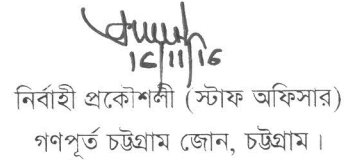 16/11/16
নির্বাহী প্রকৌশলী (স্টাফ অফিসার)
গণপূর্ত চট্টগ্রাম জোন, চট্টগ্রাম।